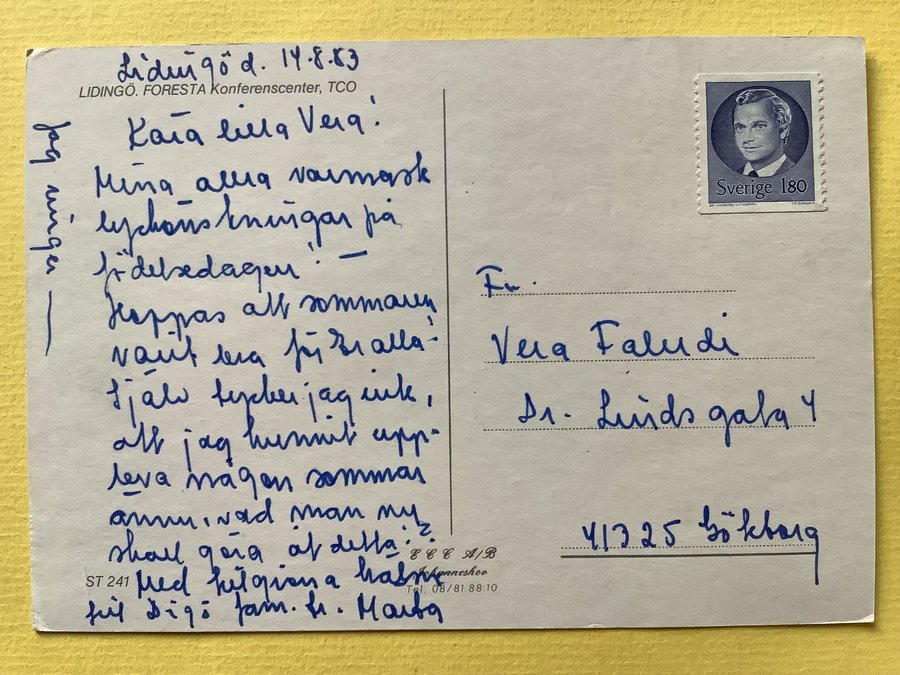 Lidingö d. 14.8.83
LIDINGÖ. FORESTA Konferenscenter, TCO
Kära lilla Vera!
Mina allra varmaste
lyckönskningar på
födelsedagen! —
Hoppas att sommaren
varit bra för Er alla!
Själv tycker jag inte,
att jag hunnit upp-
leva någon sommar
ännu, vad man nu
skall göra åt detta?
Med hilsningar
till fam. fr. Marta
Jag ringer —
ST 241
ECC A/B
Johanneshov
Tel. 08/81 88 10
Sverige 180
Fr.
Vera Faludi
Dr. Linds gata 4
41325 Göteborg